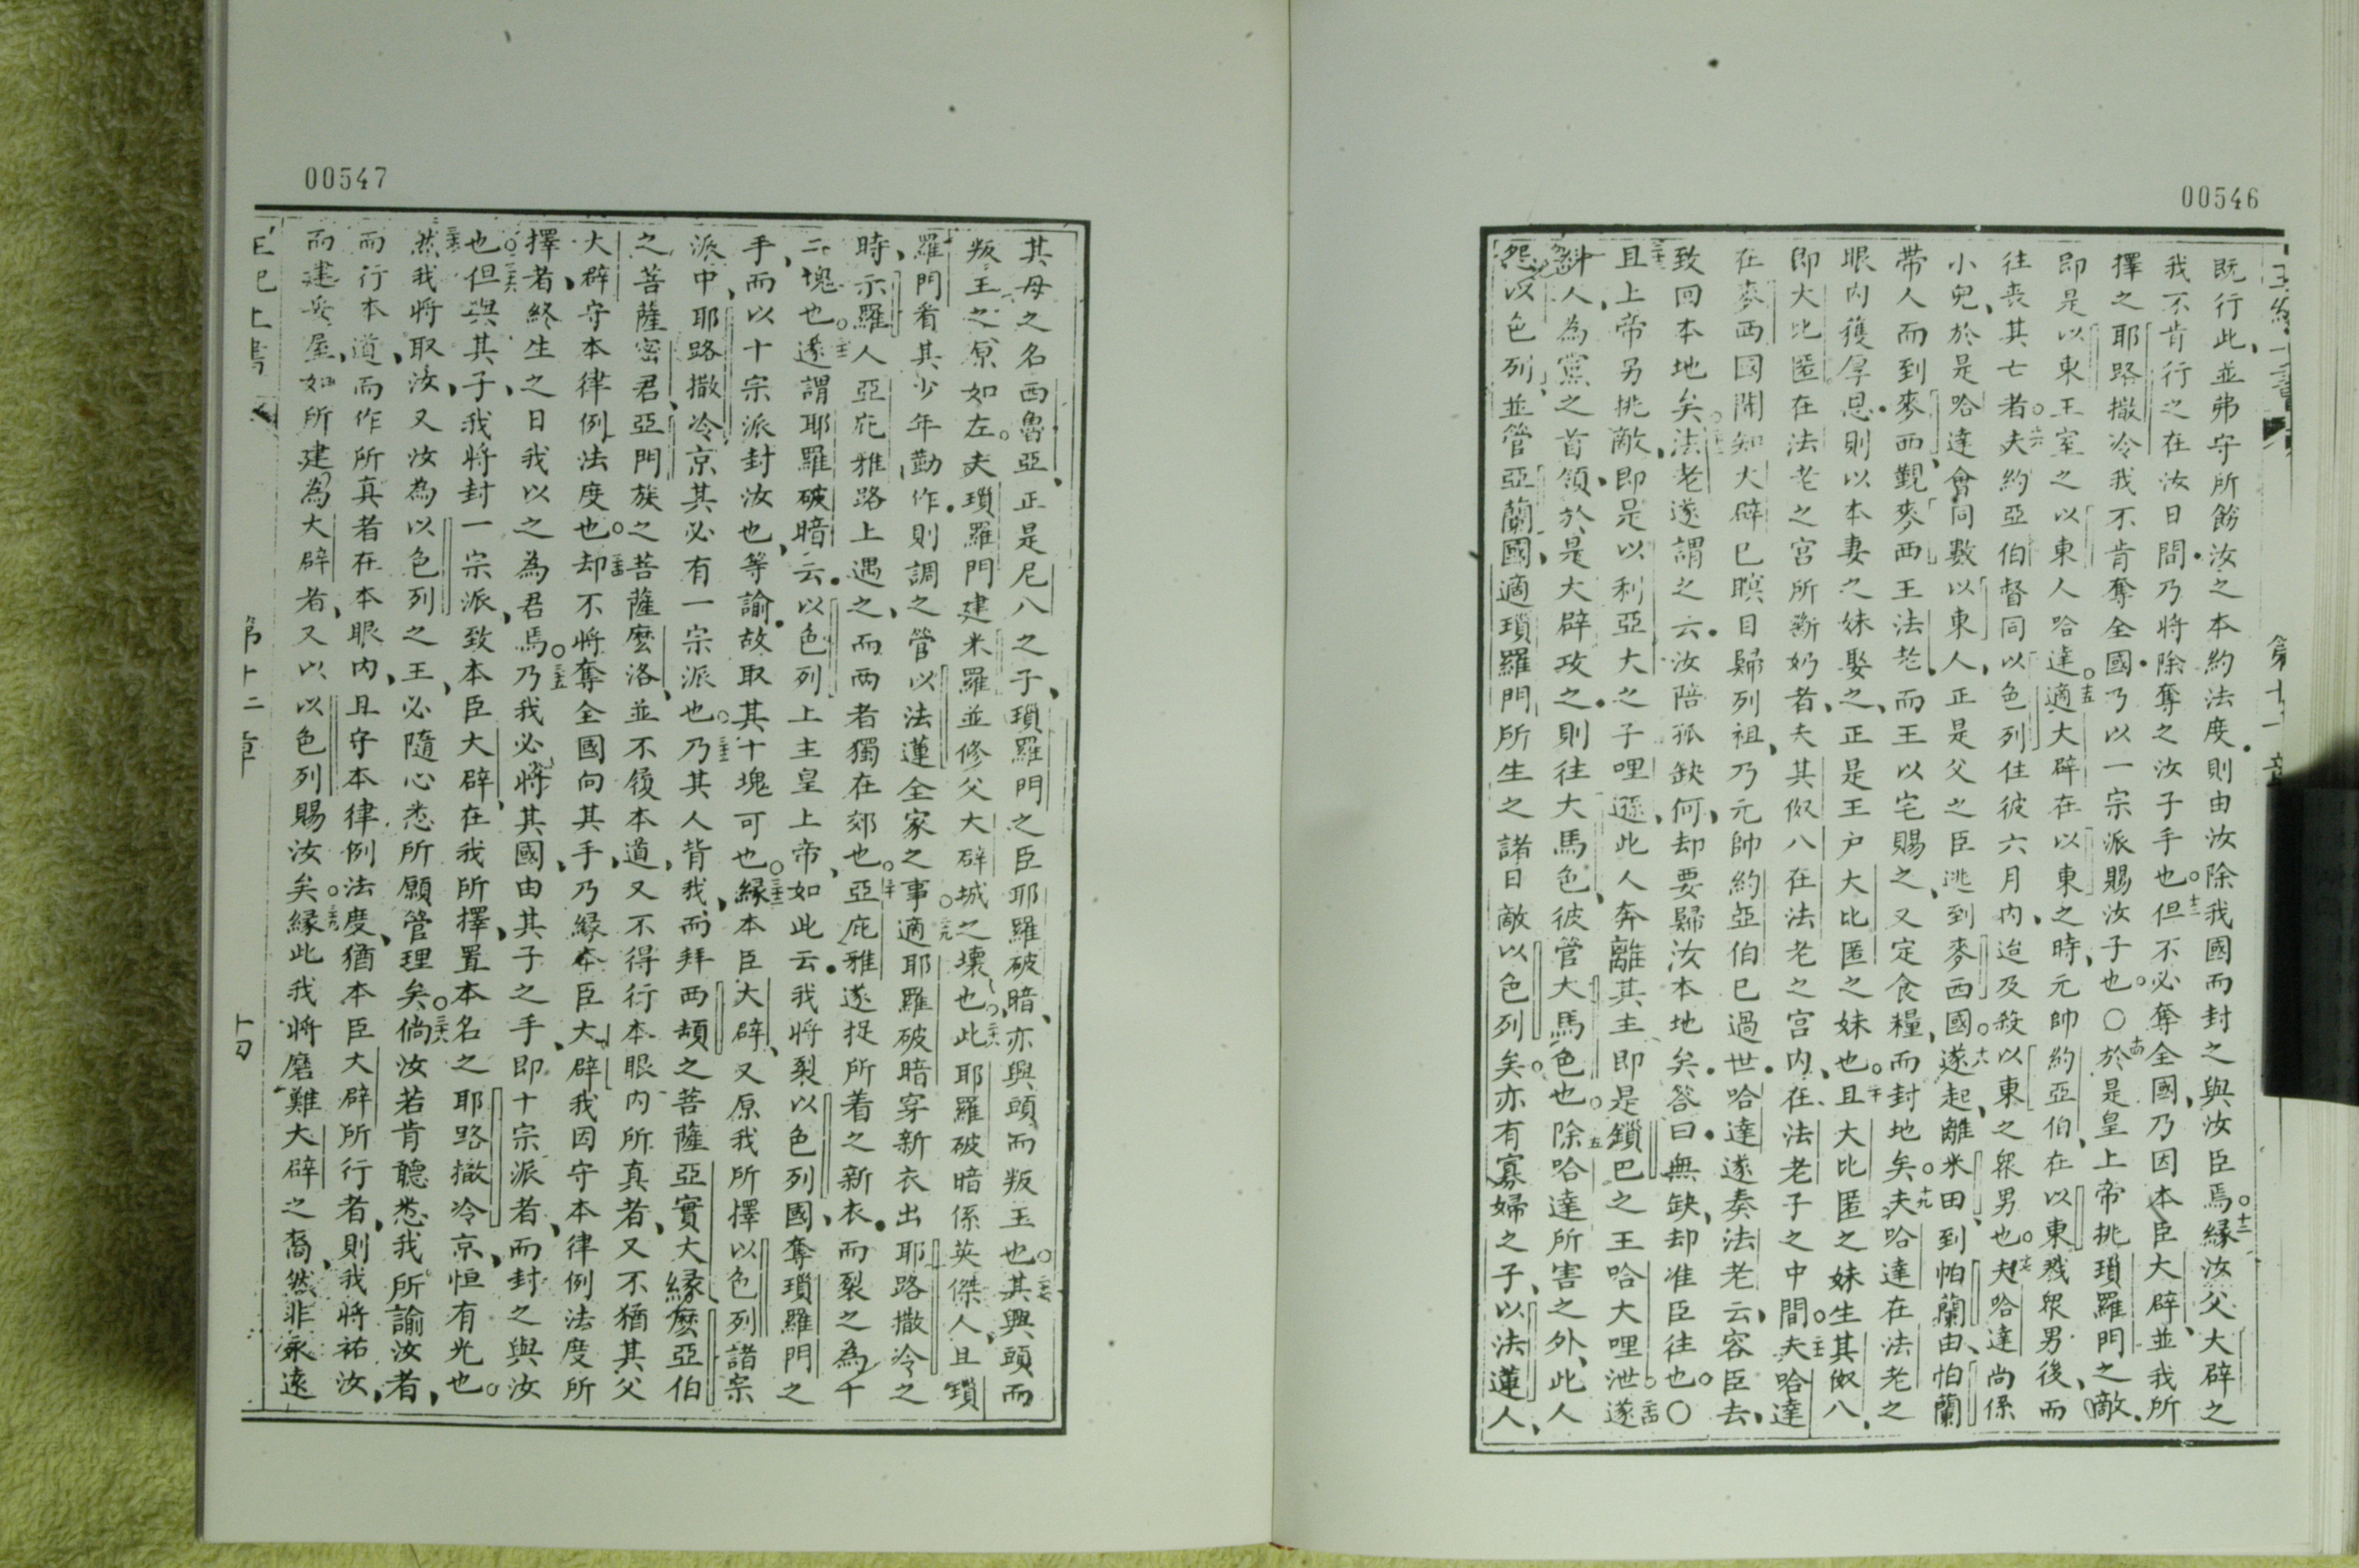 00546
第十一章
既行此、並弗守所飭汝之本約法度則由汝除我國而封之、與汝臣焉。十二緣汝父大辟之
我不肯行之在汝日間乃將除奪之汝子手也。十三但不必奪全國、乃因本臣大辟、並我所
擇之耶路撒冷我不肯奪全國乃以一宗派賜汝子也。〇十四於是皇上帝挑瑣羅門之敵、
即是以東王室之以東人哈達。十五適大辟在以東之時、元帥約亞伯、在以東戮眾男後、而
往喪其亡者。十六夫約亞伯督同以色列住彼六月內、迨及殺以東之眾男也。十七夫哈達尚係
小兒、於是哈達會同數以東人、正是父之臣逃到麥西國。十八遂起、離米田、到帕蘭、由帕蘭
帶人而到麥西、覲麥西王法老、而王以宅賜之、又定食糧、而封地矣。十九夫哈達在法老之
眼內獲厚恩、則以本妻之妹娶之、正是王户大比匿之妹也。二十且大比匿之妹生其伮八、
即大比匿在法老之宮所斷奶者、夫其伮八在法老之宮內、在法老子之中間。二十一夫哈達
在麥西國聞知大辟已瞑目歸列祖、乃元帥約亞伯已過世、哈達遂奏法老云、容臣去、
致回本地矣。二十二法老遂謂之云、汝陪孤缺何、却要歸汝本地矣。答曰、無缺、却准臣往也。〇
二十三且上帝另挑敵、即是以利亞大之子哩遜、此人奔離其主即是鎖巴之王哈大哩泄。二十四遂
糾人、為黨之首領、於是大辟攻之、則往大馬色、彼管大馬色也。二十五除哈達所害之外、此人
怨以色列、並管亞蘭國、適瑣羅門、所生之諸日敵以色列矣。亦有寡婦之子、以法蓮人、
00547
其母之名西魯亞、正是尼八之子、瑣羅門之臣耶羅破暗、亦興頭而叛王也。二十七其興頭而
叛王之原如左。夫瑣羅門建米羅並修父大辟城之壞也。二十八此耶羅破暗係英傑人、且鎖
羅門看其少年勤作、則調之管以法蓮全家之事。二十九適耶羅破暗穿新衣出耶路撒冷之
時、示羅人亞庇雅路上遇之、而兩者獨在郊也。三十亞庇雅遂捉所着之新衣、而裂之為十
二塊也。三十一遂謂耶羅破暗云、以色列上主皇上帝、如此云、我將裂以色列國、奪瑣羅門之
手、而以十宗派封汝也、等諭、故取其十塊可也。三十二緣本臣大辟、又原我所擇以色列諸宗
派中、耶路撒冷京其必有一宗派也。三十三乃其人背我、而拜西頡之菩薩亞實大、緣麽亞伯
之菩薩密君、亞門族之菩薩麽洛、並不履本道、又不得行本眼內所真者、又不猶其父
大辟守本律例法度也。三十四却不將奪全國向其手、乃緣本臣大辟我因守本律例法度所
擇者、終生之日我以之為君焉。三十五乃我必將其國、由其子之手、即十宗派者、而封之與汝
也。三十六但與其子、我將封一宗派、致本臣大辟、在我所擇、置本名之耶路撒冷京、恒有光也。
三十七然我將取汝、又汝為以色列之王、必隨心悉所願管理矣。三十八倘汝若肯聽悉我所諭汝者、
而行本道、而作所真者在本眼內、且守本律例法度、猶本臣大辟所行者、則我將祐汝、
而建汝屋、如所建為大辟者、又以以色列賜汝矣。三十九緣此我將磨難大辟之裔、然非永遠
王紀上書
第十二章
十四